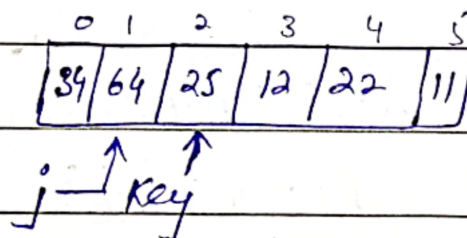 0 1 2 3 4 5
34 64 25 12 22 11
j Key